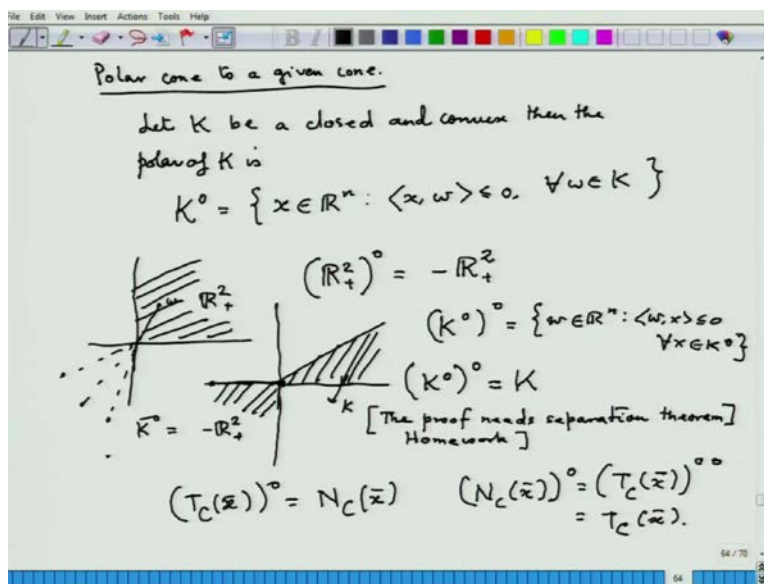 File Edit View Insert Actions Tools Help
Polar cone to a given cone.
Let K be a closed and convex then the
polar of K is
K⁰ = { x ∈ ℝⁿ : <x, w> ≤ 0, ∀ w ∈ K }
(ℝ²₊)⁰ = - ℝ²₊
w ℝ²₊
(K⁰)⁰ = { w ∈ ℝⁿ : <w, x> ≤ 0
∀ x ∈ K⁰ }
(K⁰)⁰ = K
K
K⁰ = - ℝ²₊
[The proof needs separation theorem]
Homework]
(T_C(x̄))⁰ = N_C(x̄)
(N_C(x̄))⁰ = (T_C(x̄))⁰⁰
= T_C(x̄).
64 / 70
64